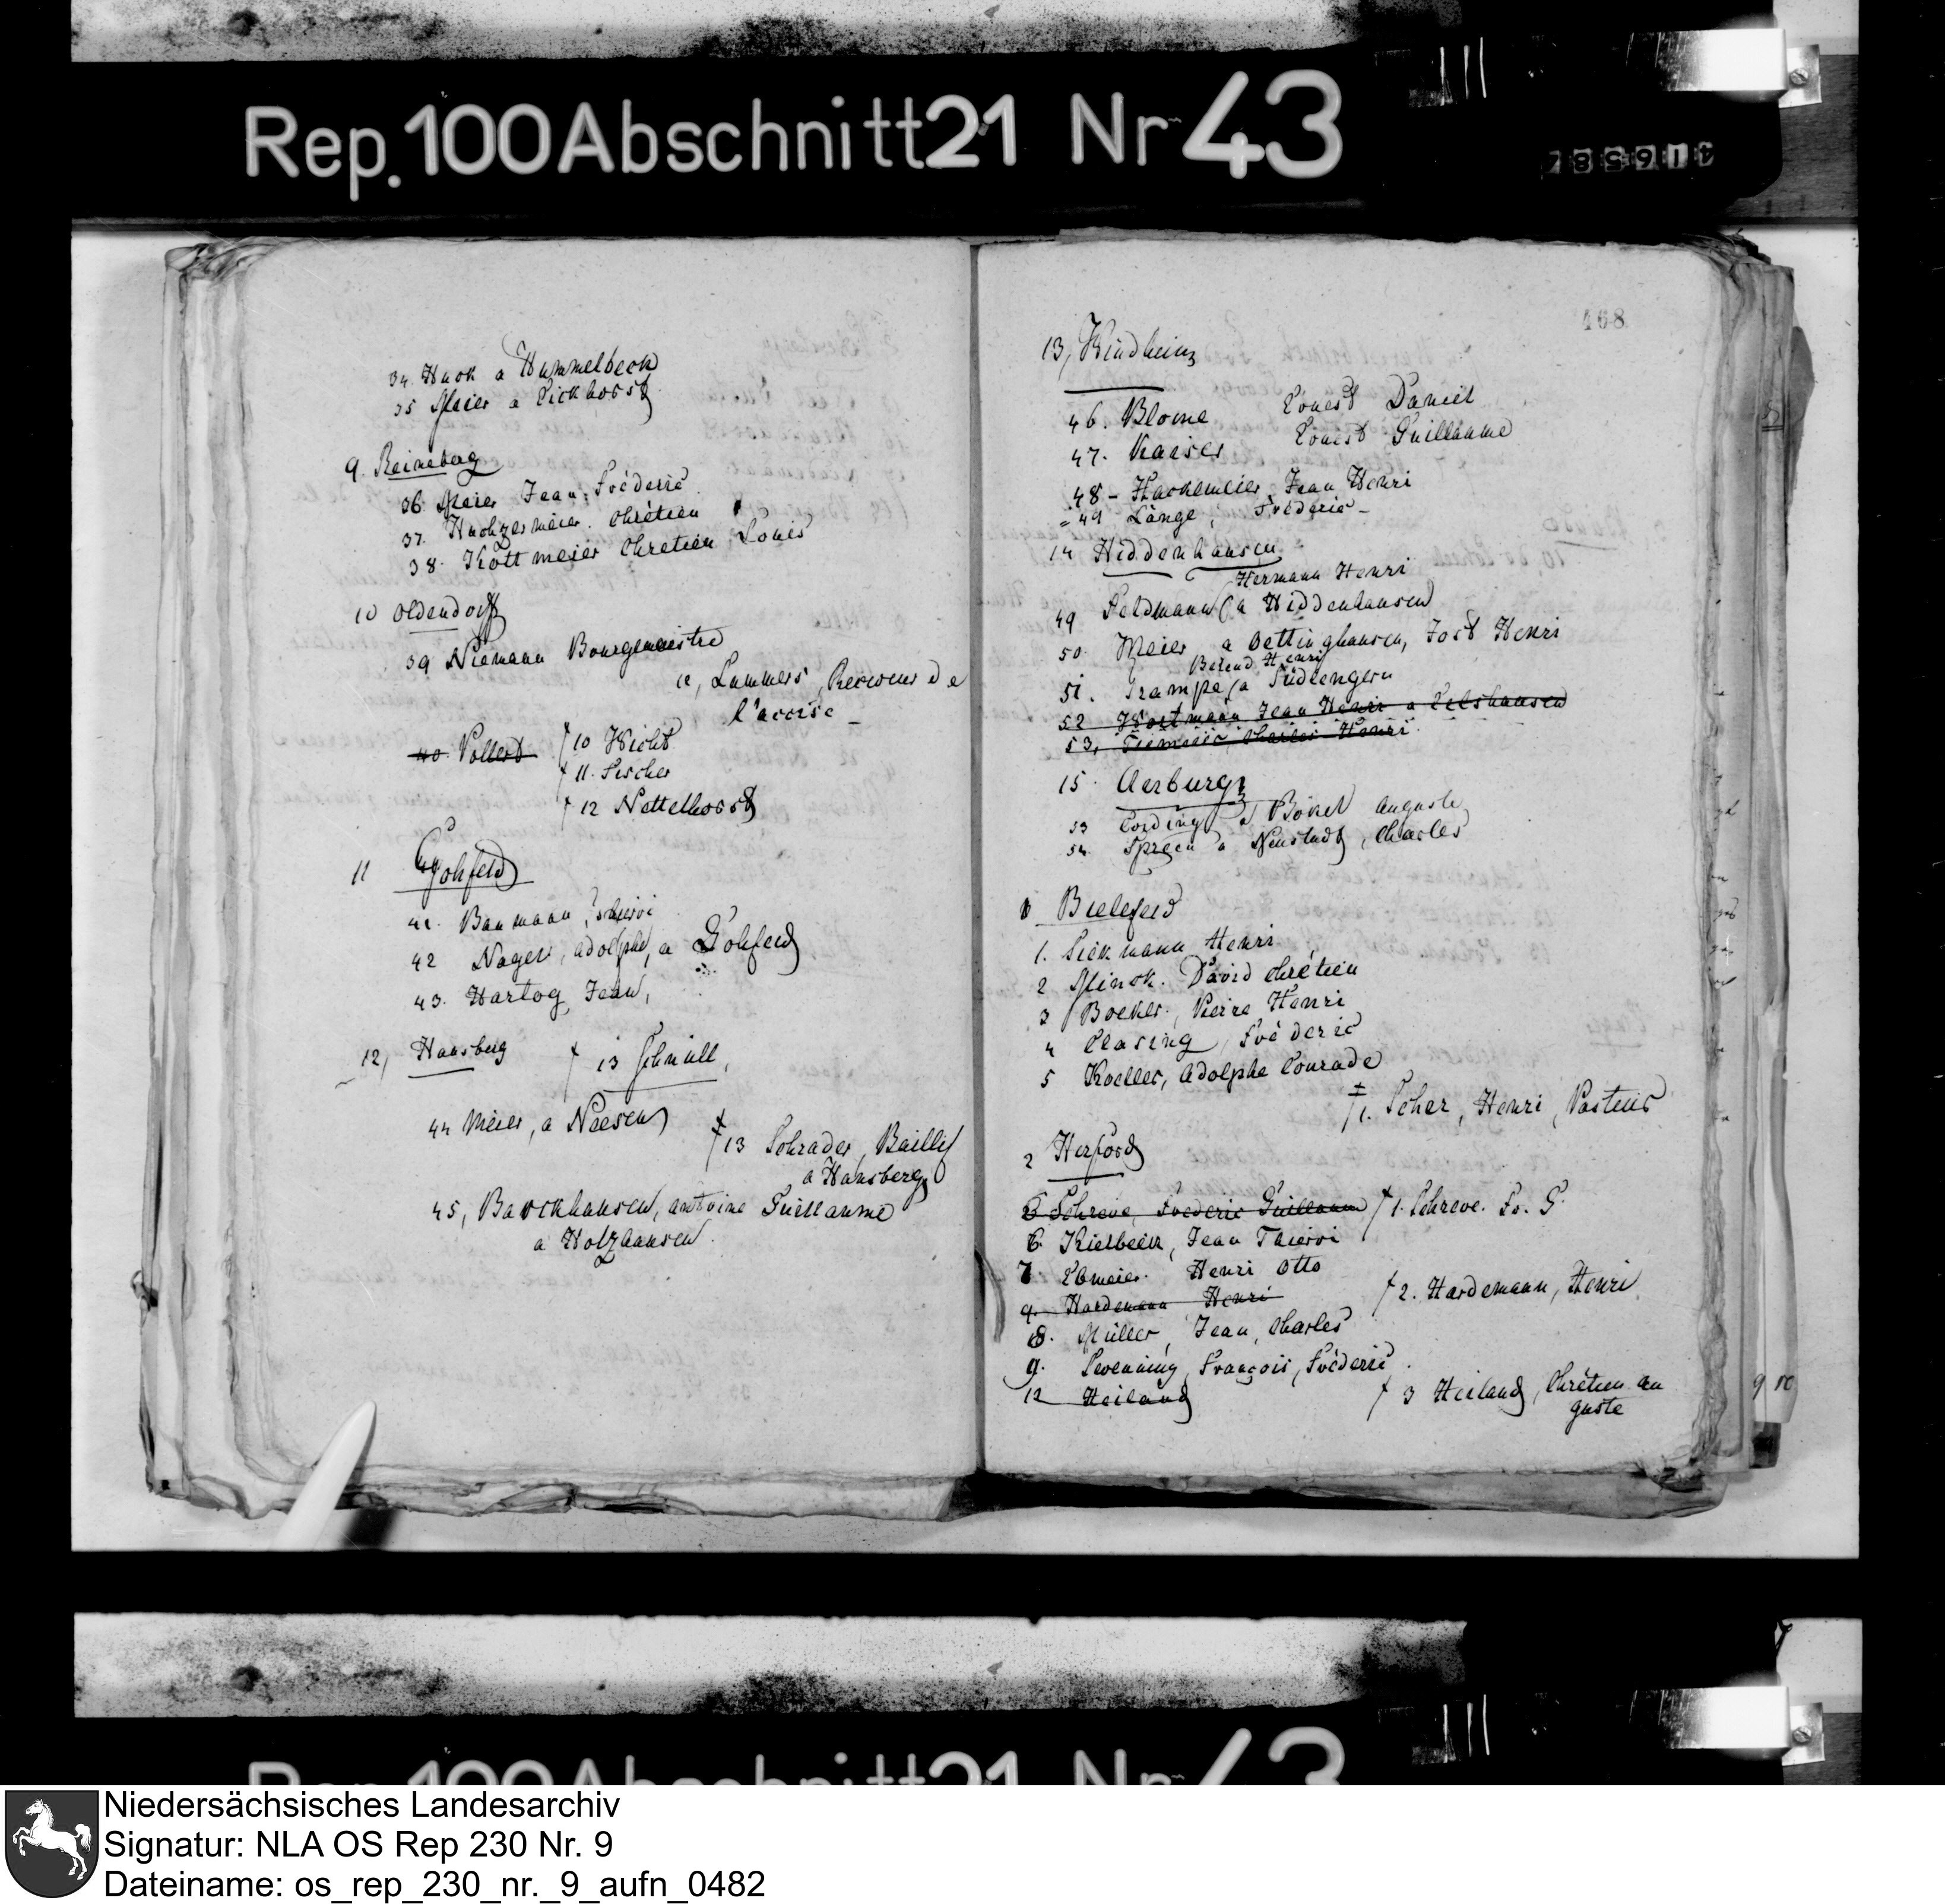 Rep. 100 Abschnitt 21 Nr 43
34 Huck a Hummelbeck
35 Meier a Eickhorst
9. Reineberg
36 Meier Jean Fréderic
37. Huchzermeier. Chrétien
38. Kottmeier Chretien Louis
10 Oldendorff
39 Niemann Bourgemeistre
Lummers, Receveur de
l'accise
40. Vollert
† 10 Wicht
† 11. Fischer
† 12 Nettelhorst
11 Gohfeld
41. Baumann, Thierri
42 Nagel, Adolphe, a Gohfeld
43. Hartog Jean,
12, Hausberg † 13 Schmill,
44 Meier, a Neesen
† 13 Schrader, Bailli
a Hausberg
45, Barckhausen, Antoine Guillaume
a Holzhausen.
468
13, Kirchheim
46. Blome Ernest Daniel
47. Kaiser Ernest Guillaume
48 - Hackemeier Jean Henri
49 Länge, Fréderic -
14 Hiddenhausen
Hermann Henri
49 Feldmann (a Hiddenhausen
50. Meier a Oettinghausen, Jost Henri
Berend Henri
51. Trampe (a Südlengern
52 Wortmann Jean Henri a Eilshausen
53, Charles Henri.
15.
53 Cording a Bökel Auguste
54 Spreen a Neustadt, Charles
Bielefeld
1. Sickmann Henri
2 Minck. David Chrétien
3 Boeker, Pierre Henri
4 Clasing, Fréderic
5 Koeller, Adolphe Conrade
† 1. Scher, Henri, Pasteur
2 Herford
6 Schreve, Frederic Guillaume † 1. Schreve. Fr. G.
6. Kielbeck, Jean Thierri
7. Ebmeier. Henri Otto
9. Hardemann Henri † 2. Hardemann, Henri
8. Müller, Jean, Charles
9. François, Fréderic.
12 Heiland † 3 Heiland, Chrétien Au
guste
Niedersächsisches Landesarchiv
Signatur: NLA OS Rep 230 Nr. 9
Dateiname: os_rep_230_nr._9_aufn_0482